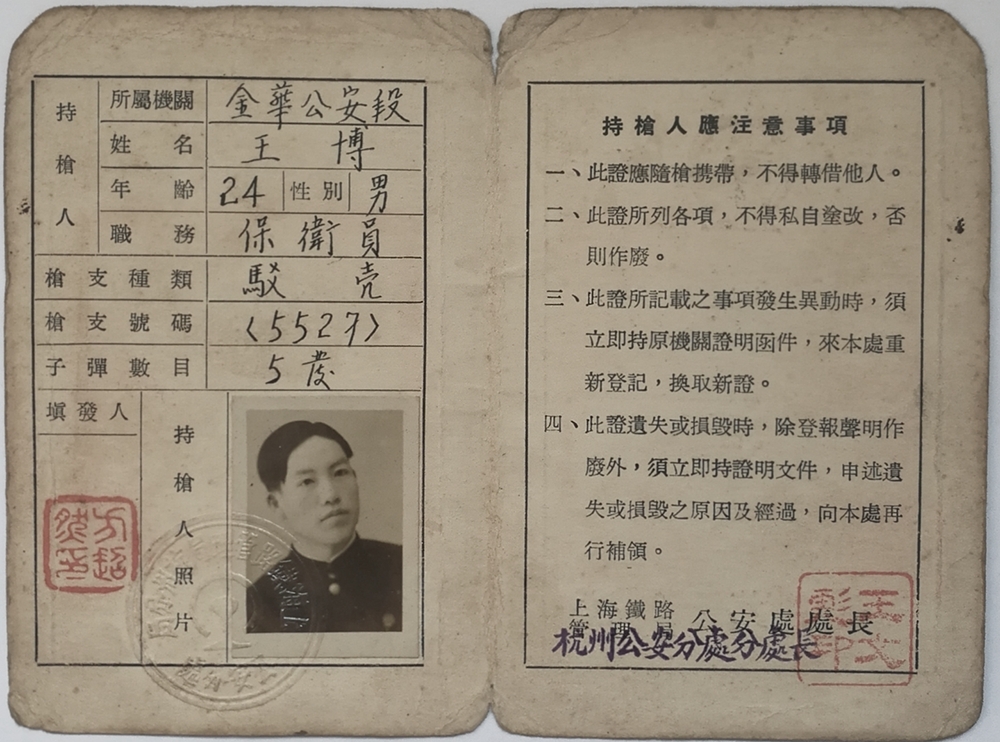 持槍人
所屬機關 金華公安段
姓名 王博
年齡 24 性別 男
職務 保衛員
槍支種類 駁壳
槍支號碼 〈5527〉
子彈數目 5發
填發人
持槍人照片
持槍人應注意事項
一、此證應隨槍携帶，不得轉借他人。
二、此證所列各項，不得私自塗改，否
則作廢。
三、此證所記載之事項發生異動時，須
立即持原機關證明函件，來本處重
新登記，換取新證。
四、此證遺失或損毀時，除登報聲明作
廢外，須立即持證明文件，申述遺
失或損毀之原因及經過，向本處再
行補領。
上海鐵路
管理局 公安處處長
杭州公安分處分處長